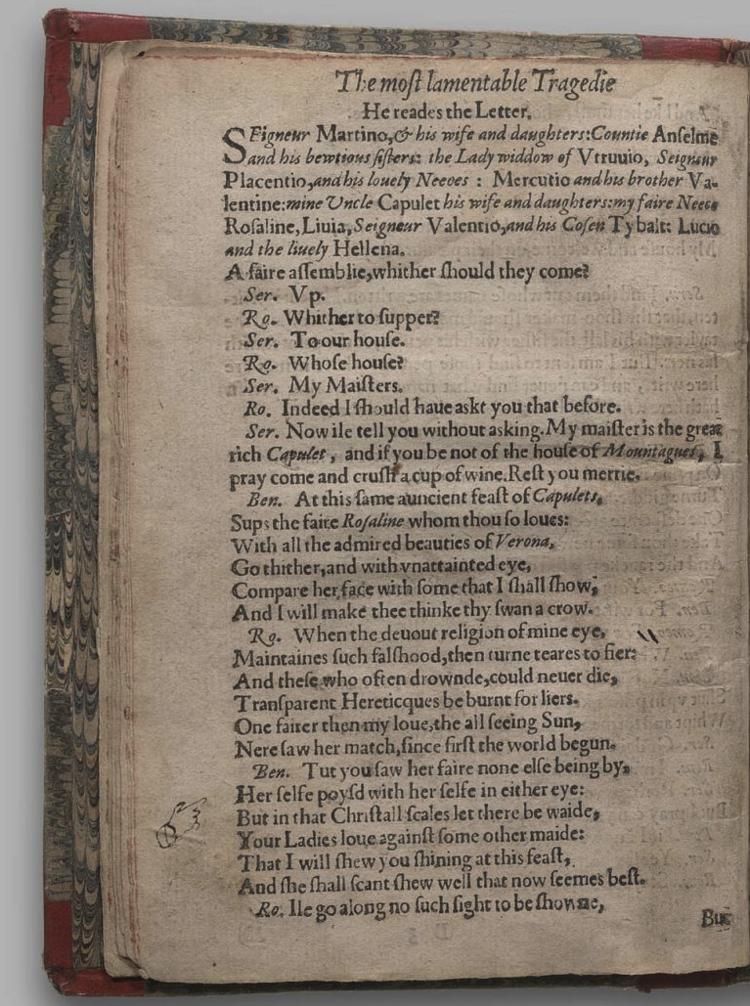 The most lamentable Tragedie
He reades the Letter.
SEigneur Martino, & his wife and daughters: Countie Anselme
and his bewtious sisters: the Lady widdow of Vtruuio, Seigneur
Placentio, and his louely Neeces : Mercutio and his brother Va-
lentine: mine Uncle Capulet his wife and daughters: my faire Neece
Rosaline, Liuia, Seigneur Valentio, and his Cosen Tybalt: Lucio
and the liuely Hellena.
A faire assemblie, whither should they come?
Ser. Vp.
Ro. Whither to supper?
Ser. To our house.
Ro. Whose house?
Ser. My Maisters.
Ro. Indeed I should haue askt you that before.
Ser. Now ile tell you without asking. My maister is the great
rich Capulet, and if you be not of the house of Mountagues, I
pray come and crush a cup of wine. Rest you merrie.
Ben. At this same auncient feast of Capulets,
Sups the faire Rosaline whom thou so loues:
With all the admired beauties of Verona,
Go thither, and with vnattainted eye,
Compare her face with some that I shall show,
And I will make thee thinke thy swan a crow.
Ro. When the deuout religion of mine eye,
Maintaines such falshood, then turne teares to fier:
And these who often drownde, could neuer die,
Transparent Hereticques be burnt for liers.
One fairer then my loue, the all seeing Sun,
Nere saw her match, since first the world begun.
Ben. Tut you saw her faire none else being by,
Her selfe poysd with her selfe in either eye:
But in that Christall scales let there be waide,
Your Ladies loue against some other maide:
That I will shew you shining at this feast,
And she shall scant shew well that now seemes best.
Ro. Ile go along no such sight to be showne,
But